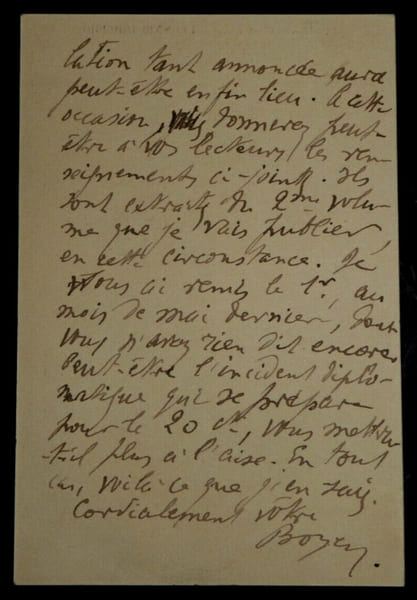 lation tant annoncée aura
peut-être enfin lieu. A cette
occasion, vous donnerez peut-
être à vos lecteurs les ren-
seignements ci-joints. Ils
sont extraits du 2me volu-
me que je vais publier,
en cette circonstance. Je
vous ai remis le 1r, au
mois de mai dernier, dont
vous n'avez rien dit encore.
Peut-être l'incident diplo-
matique qui se prépare
pour le 20 ct, vous mettra-
t-il plus à l'aise. En tout
cas, voilà ce que j'en sais.
Cordialement vôtre